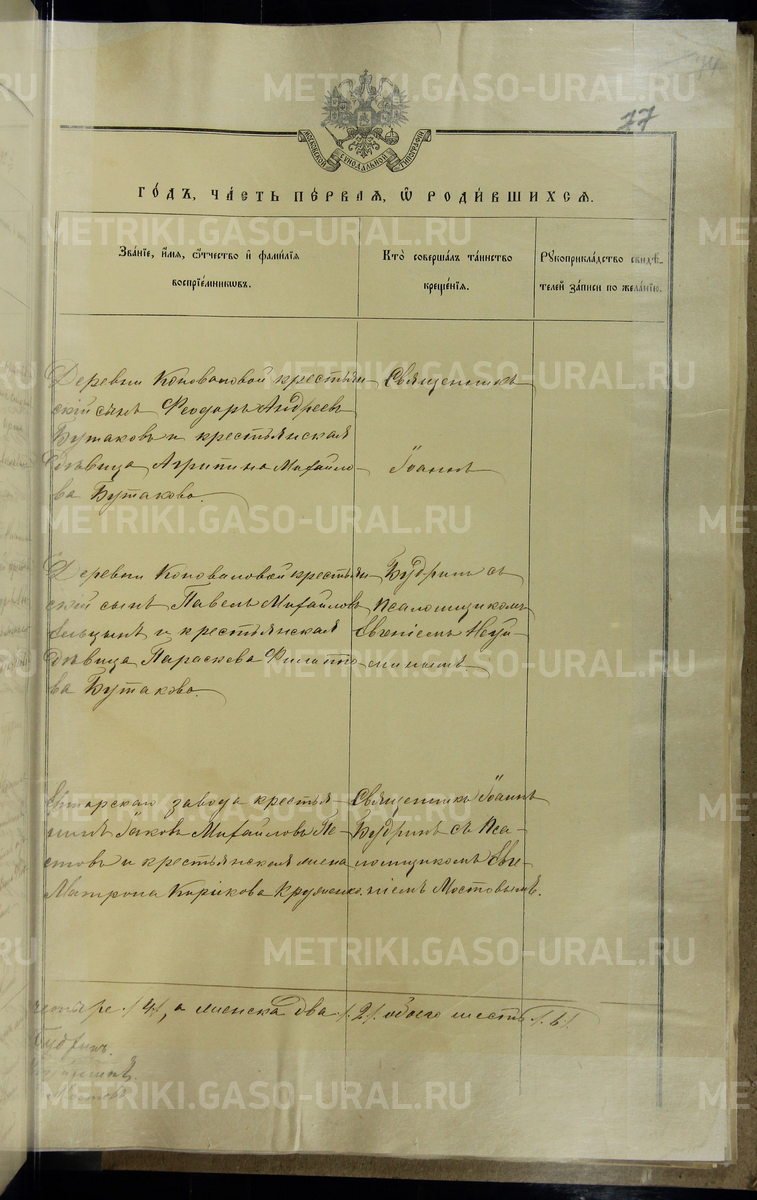 77
МОСКОВСКОЙ СѴНОДАЛЬНОЙ ТИПОГРАФІИ
ГО́ДЪ, ЧА́СТЬ ПЕ́РВАЯ, Ѽ РОДИ́ВШИХСЯ.
Зва́нїе, и҆́мя, ѻ҆́тчество и҆ фами́лїя
воспрїе́мниковъ.
Кто̀ соверша́лъ та́инство
креще́нїя.
Рꙋкоприкла́дство свидѣ́-
телей за́писи по жела́нїю.
Деревни Коноваловой крестьян-
скій сынъ Ѳеодоръ Андреевъ
Бутаковъ и крестьянская
дѣвица Агрипина Михайло-
ва Бутакова.
Священникъ
Іоаннъ
Деревни Коноваловой крестьян-
скій сынъ Павелъ Михайловъ
и крестьянская
дѣвица Параскева Филиппо-
ва Бутакова.
Будринъ съ
псаломщикомъ
Евгеніемъ
завода крестья-
нинъ Іаковъ Михайловъ Пе-
стовъ и крестьянская жена
Матрона Кирикова
Священникъ Іоаннъ
Будринъ съ Пса-
ломщикомъ Евге-
ніемъ Мостовымъ.
четыре /4/, а женска два /2/. обоего шесть /6/.
Будринъ.
METRIKI.GASO-URAL.RU